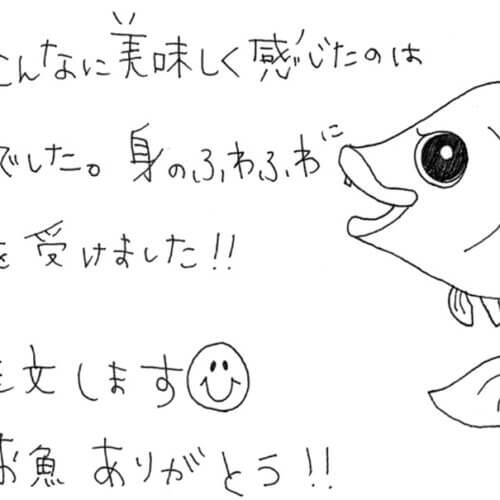 こんなに美味しく感じたのは
でした。身のふわふわに
を受けました!!
文します
お魚 ありがとう!!